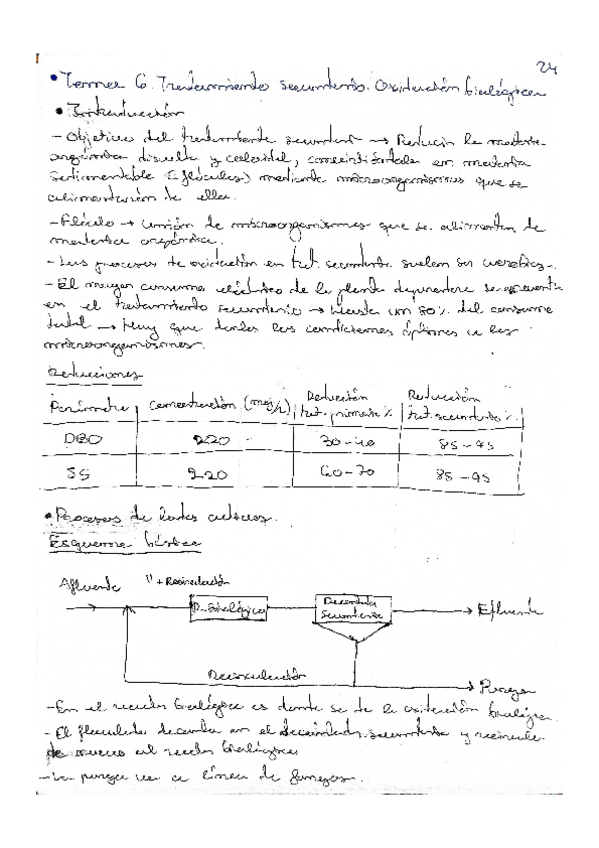 24
• Tema 6. Tratamiento secundario. Oxidación biológica
• Introducción
- Objetivo del tratamiento secund. → Reducir la materia
orgánica disuelta y coloidal, convirtiéndola en materia
sedimentable (flóculos) mediante microorganismos que se
alimentarán de ella.
- Flóculo → Unión de microorganismos que se alimentan de
materia orgánica.
- Los procesos de oxidación en trat. secundario suelen ser aerobios.
- El mayor consumo eléctrico de la planta depuradora se encuentra
en el tratamiento secundario → Hasta un 80% del consumo
total → Hay que darles las condiciones óptimas a los
microorganismos.
Reducciones
Parámetro | Concentración (mg/L) | Reducción trat. primario % | Reducción trat. secundario %
DBO | 220 | 30-40 | 85-95
SS | 220 | 60-70 | 85-95
• Procesos de lodos activos.
Esquema básico
Afluente " + Recirculación
R. Biológico
Decantador
Secundario
Efluente
Recirculación
Purga
- En el reactor biológico es donde se da la oxidación biológica.
- El floculado decanta en el decantador secundario y recircula
de nuevo al reactor biológico
- La purga va a línea de fangos.